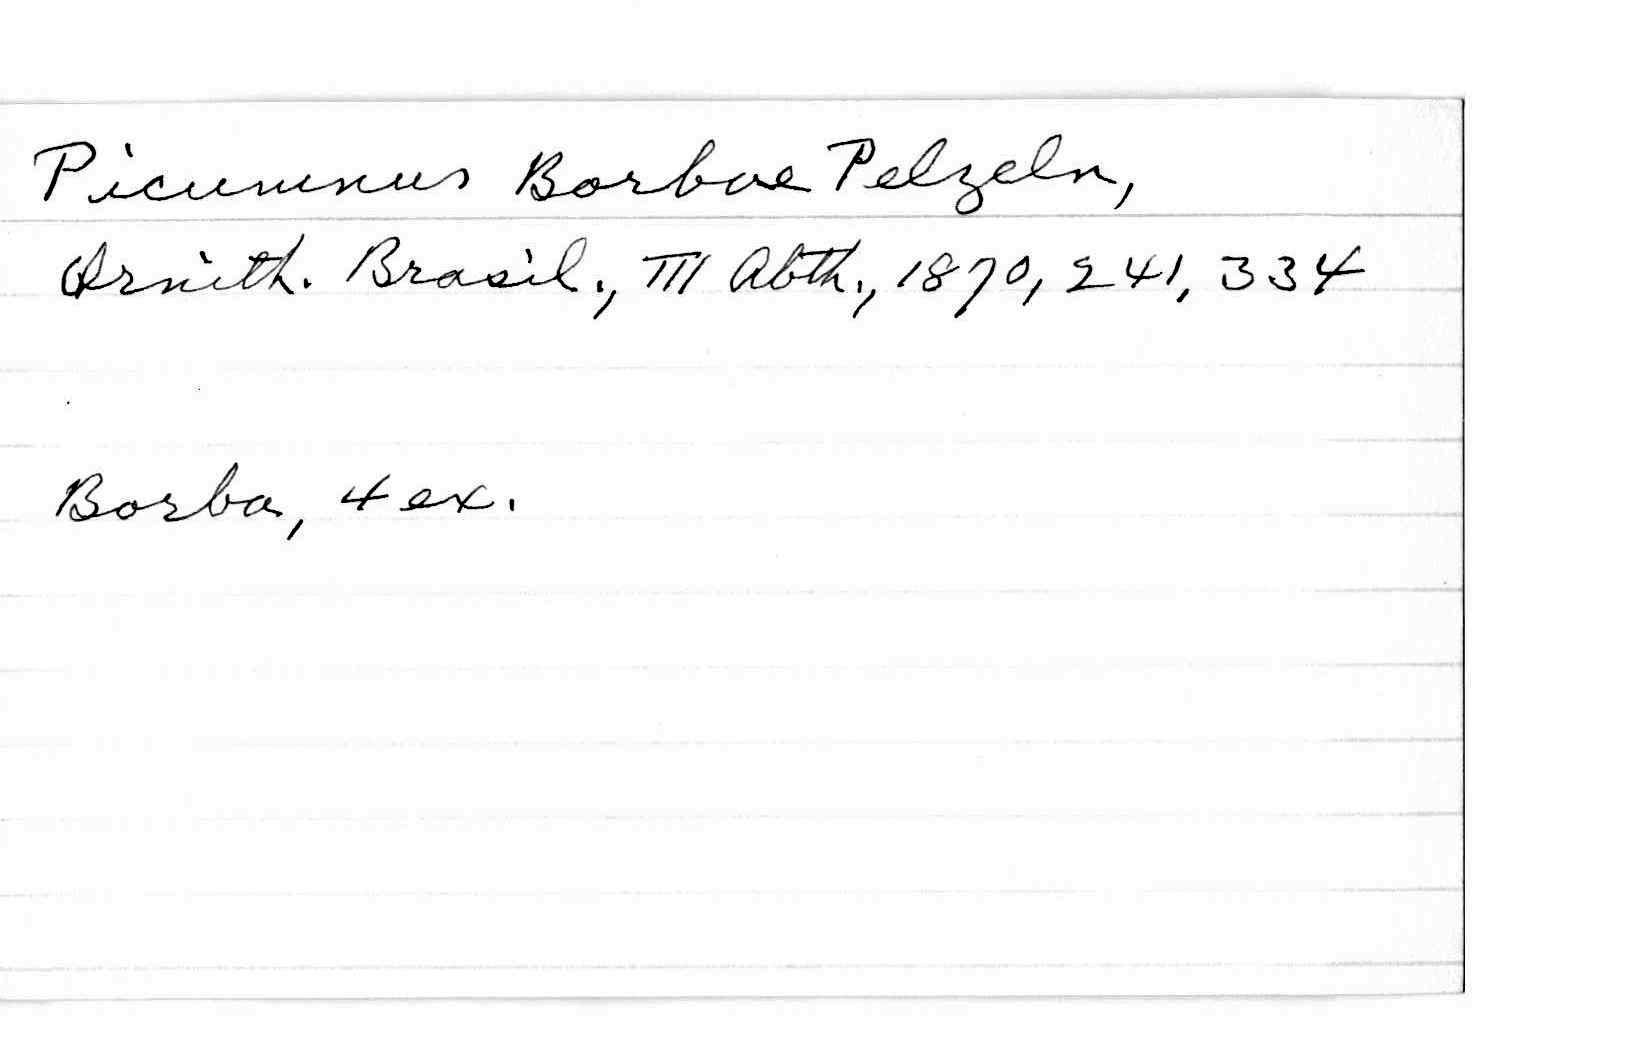 Picumnus Borbae Pelzeln,
Ornith. Brasil., III Abth., 1870, 241, 334
Borba, 4 ex.